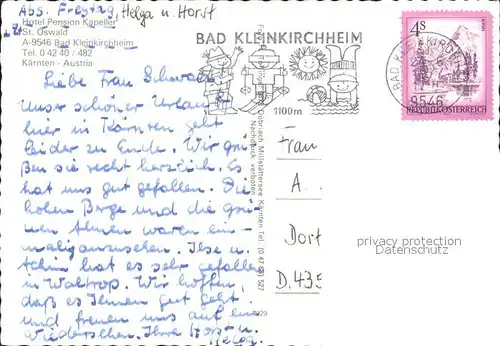 Abs. Freytag, Helga u. Horst
Hotel Pension Kapeller
St. Oswald
A-9546 Bad Kleinkirchheim
Tel. 0 42 40 / 482
Kärnten - Austria
Liebe Frau Schwalb
Unser schöner Urlaub
hier in Kärnten geht
leider zu Ende. Wir grü-
ßen sie recht herzlich. Es
hat uns gut gefallen. Die
hohen Berge und die grü-
nen Almen waren ein-
malig anzusehen. Ilse u.
Achim hat es sehr gefallen
in Waltrop. Wir hoffen,
daß es Ihnen gut geht
und freuen uns auf ein
Wiedersehen. Ihre Horst u.
Helga
BAD KLEINKIRCHHEIM
1100m
Döbriach Millstättersee Kärnten Tel. (0 42 46)
527
Nachdruck verboten
BAD KLEINKIRCHHEIM
9546
4S
REPUBLIK ÖSTERREICH
Frau
A.
Dort
D. 435
privacy protection
Datenschutz